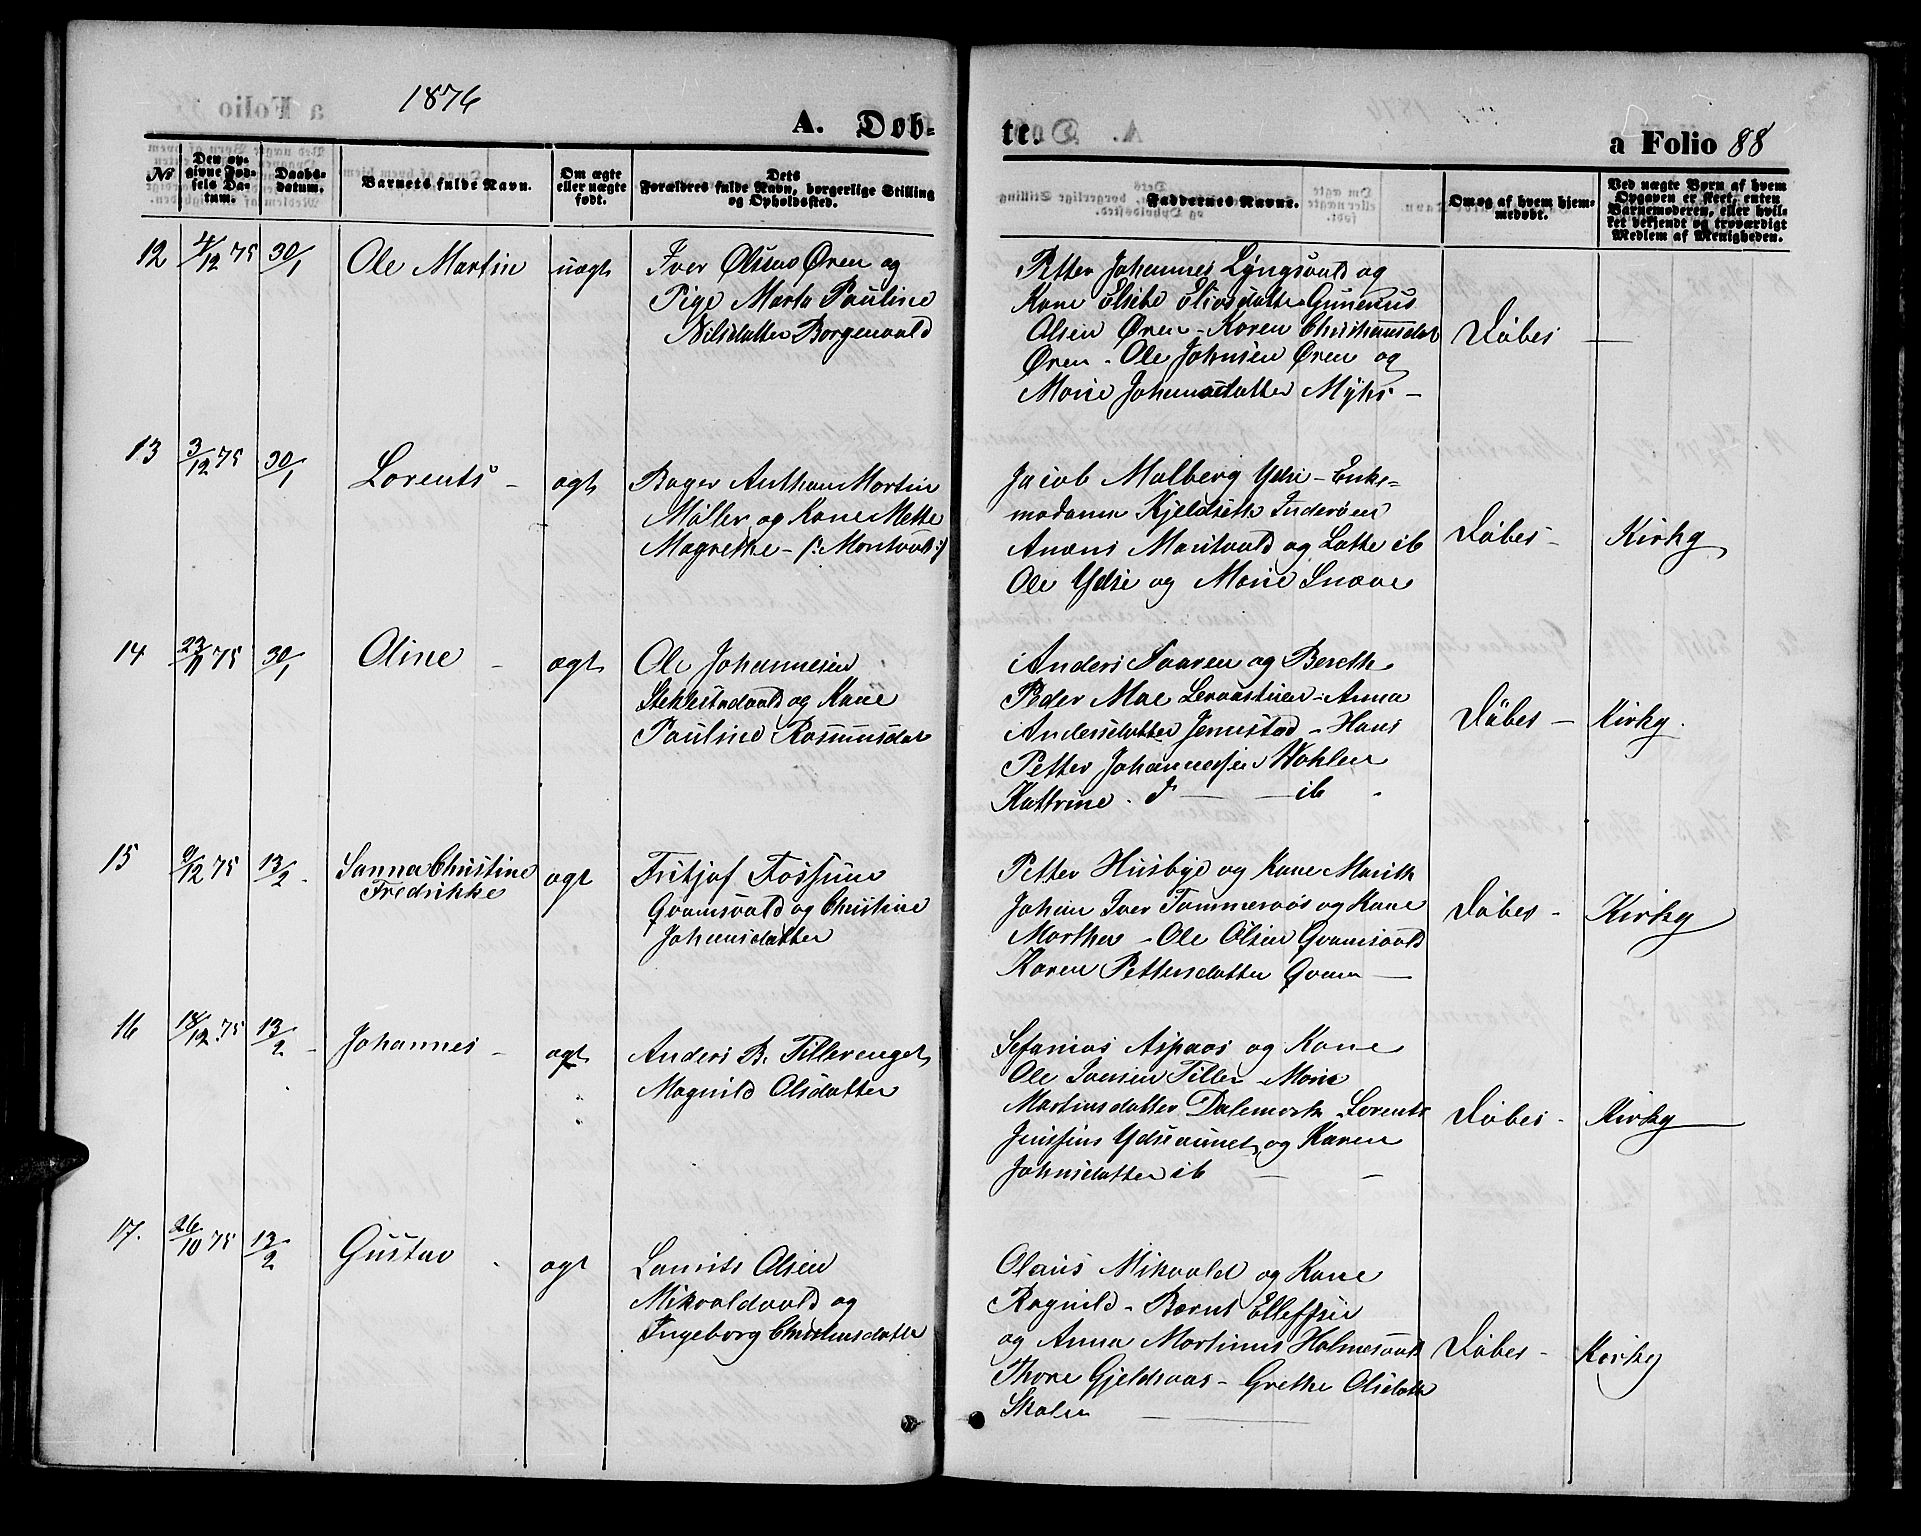 1876
A. Døb-
te.
a Folio 88
No
Den op-
givne Fød-
sels Da-
tum.
Daabs-
datum.
Barnets fulde Navn.
Om ægte
eller uægte
født.
Dets
Forældres fulde Navn, borgerlige Stilling
og Opholdssted.
Faddernes Navne.
Om og af hvem hjem-
medøbt.
Ved uægte Børn af hvem
Opgaven er skeet, enten
Barnemoderen, eller hvil-
ket bekjendt og troværdigt
Medlem af Menigheden.
12 4/12 75 30/1 Ole Martin uægt
Iver Olsens Ören og
Pige Marta Pauline
Nilsdatter Borgenvald
Petter Johannes Lyngsvald og
Kone Elsebe Eliasdatter Gunerius
Olsen Ören - Karen Christiansdat
Ören - Ole Johnsen Ören og
Marie Johansdatter Myhr -
Döbes —
13 3/12 75 30/1 Lorents - ægt
Bager Anthon Martin
Möller og Kone Mette
Magrethe - /: Maritvald :/
Jacob Malberg Ydse - Enke-
madame Kjeldseth Inderöen
Anæus Maritvald og Lotte ib
Ole Ydse og Marie Snave
Döbes - Kirky
14 23/11 75 30/1 Oline - ægt
Ole Johannesen
Stiklestadvald og Kone
Pauline Rasmusdat
Anders Saaren og Bereth
Peder Moe - Anna
Andersdatter Jermstad - Hans
Petter Johannesen Wohlen
Kattrine . d — ib
Döbes - Kirky.
15 9/12 75 13/2 - Sanna Christine
Fredrikke ægt
Fritjof Fossum
Qvamsvald og Christine
Johansdatter
Petter Husbye og Kone Marith
Johan Iver Tömmeraas og Kone
Marthe - Ole Olsen Qvamsvald
Karen Pettersdatter Qvam —
Döbes - Kirky
16 18/12 75 13/2 - Johannes - ægt
Anders B. Tillerenget
Magnild Olsdatter
Sefanias Aspaas og Kone
Ole Iversen Tiller - Marie
Martinsdatter Dalemark - Lorents
Jensens Ydseaunet og Karen
Johnsdatter ib - -
Döbes - Kirky
17. 26/10 75 13/2 Gustav - ægt
Laurits Olsen
Mikvoldvald og
Ingeborg Christensdatter
Olaus Mikvold og Kone
Ragnild - Bernt Elleffsen
og Anna Martinus Holmesvald
Thore Gjeldvaas - Grethe Olsdatter
Skalen —
Döbes - Kirky